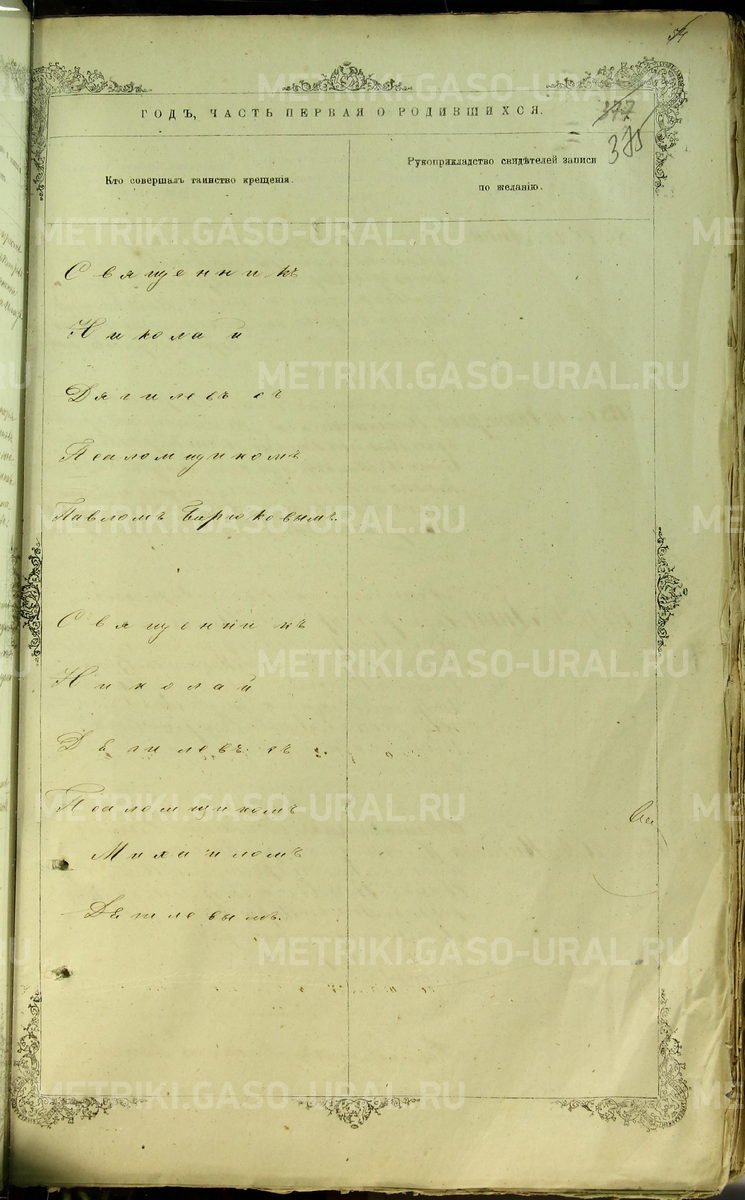 ГОДЪ, ЧАСТЬ ПЕРВАЯ О РОДИВШИХСЯ.
377
375
Кто совершалъ таинство крещенія.
Рукоприкладство свидѣтелей записи
по желанію.
Священникъ
Николай
Дягилевъ съ
Псаломщикомъ
Павломъ Бирюковымъ.
Священникъ
Николай
Дягилевъ съ
Псаломщикомъ
Михаиломъ
METRIKI.GASO-URAL.RU